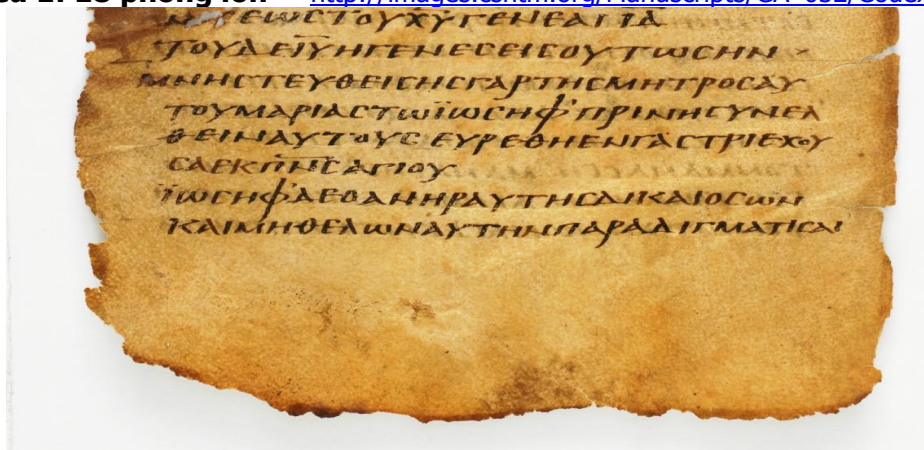 http://images.csntm.org/Manuscripts/GA_032/Codex
ΕΩCΤΟΥΧ̅Υ̅ΓΕΝΕΑΙΙΔ̅
ΤΟΥΔΕΙ̅Υ̅ΗΓΕΝΕCΕΙCΟΥΤΩCΗΝ
ΜΝΗCΤΕΥΘΕΙCΗCΓΑΡΤΗCΜΗΤΡΟCΑΥ
ΤΟΥΜΑΡΙΑCΤΩΪΩCΗΦ’ΠΡΙΝΗCΥΝΕΛ
ΘΕΙΝΑΥΤΟΥC ΕΥΡΕΘΗΕΝΓΑCΤΡΙΕΧΟΥ
CΑΕΚΠ̅Ν̅C̅ΑΓΙΟΥ
ΪΩCΗΦ’ΔΕΟΑΝΗΡΑΥΤΗCΔΙΚΑΙΟCΩΝ
ΚΑΙΜΗΘΕΛΩΝΑΥΤΗΝΠΑΡΑΔΙΓΜΑΤΙCΑΙ